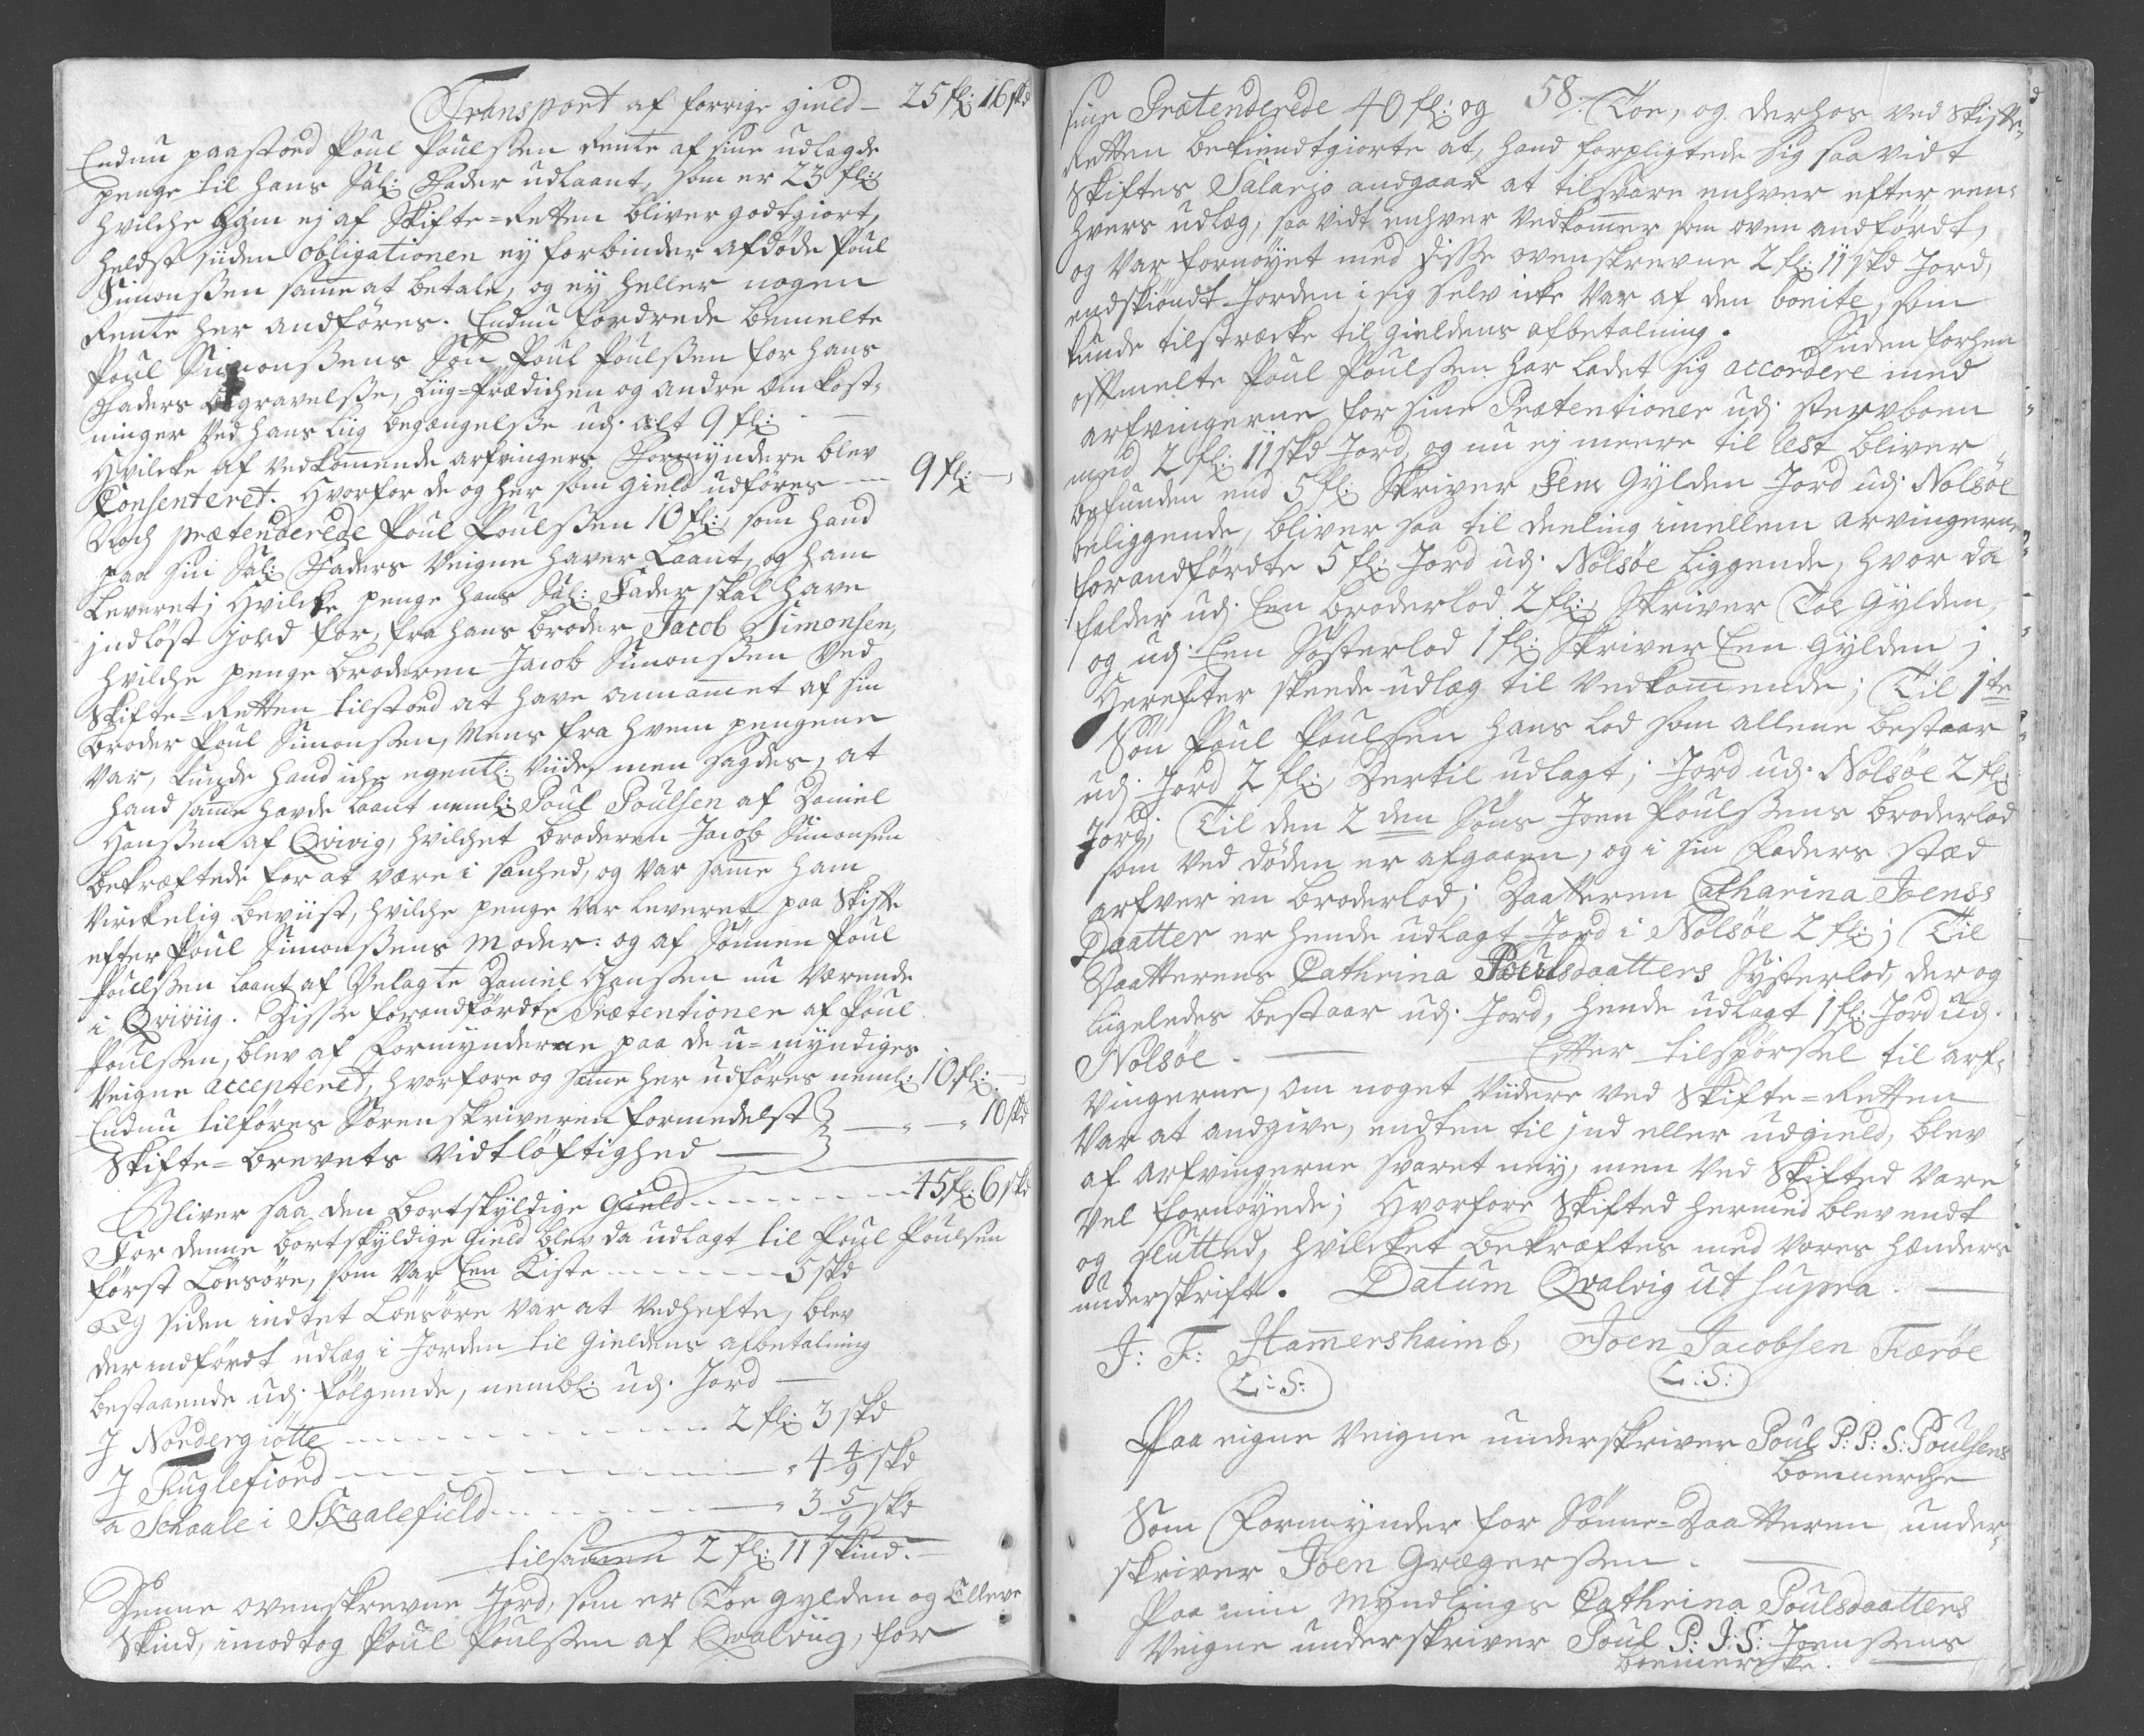 Transport af forrige gield – 25 fl: 16 skd
Endnu paastoed Poul Poulssen Rente af sine udlagde
penge til hans Sal: Fader udlaant, som er 23 fl:
hvilche ham ej af Skifte=Retten bliver godtgiort,
heldst siiden obligationen ey forbinder afdøde Poul
Simonssen samme at betale, og ey heller nogen
Rente her andføres. Endnu fordrede bemelte
Poul Simonssens Søn Poul Poulssen for hans
Faders begravelsse, Liig=Prædichen og andre omkost=
ninger ved hans Liig begængelsse udj alt 9 fl:
Hvilcke af vedkommende arfvingers Formyndere blev
Consenteret. Hvorfor de og her som gield udføres — 9 fl: —
Noch prætenderede Poul Poulssen 10 fl: som hand
paa sin Sal: Faders Veigne haver Laant, og ham
Leveret; Hvilcke penge hans Sal: Fader skal have
jndløst jord for, fra hans broder Jacob Simonsen,
hvilche penge broderen Jacob Simonssen ved
Skifte=Retten tilstoed at have annammet af sin
broder Poul Simonssen, Mens fra hvem pengene
var, kunde hand iche egentl: viide, men sagdes, at
hand samme havde laant neml: Poul Poulsen af Daniel
Hanssen af Qvivig, hvilchet broderen Jacob Simonsen
bekræftede for at være i sanhed, og var samme ham
virckelig beviist, hvilche penge var leveret paa Skifte
efter Poul Simonssens Moder: og af Sønnen Poul
Poulssen laant af Velagte Daniel Hanssen nu værende
i Qviviig. Disse forandførdte Prætentioner af Poul
Poulssen, blev af Formynderne paa de u=myndiges
Veigne accepteret, hvorfore og samme her udføres neml: 10 fl: —
Endnu tilføres Sorenskriveren formedelst } — „ — „ 10 skd
Skifte=brevets vidtløftighed — }
Bliver saa den bortskyldige gield — 45 fl: 6 skd
For denne bortskyldige gield blev da udlagt til Poul Poulsen
først Løesøre, som var Een Kiste — 5 skd
Og siden indtet Løesøre var at vedhefte, blev
der indførdt udlæg i Jorden til gieldens afbetalning
bestaaende udj følgende, nembl: udj Jord —
J Nordergiøtte — 2 fl: 3 skd
J Fuglefiord — „ 4 4/9 skd
a Schaale i Skaalefield — „ 3 5/9 skd
tilsammen 2 fl: 11 skind. —
Denne ovenskrevne Jord, som er Toe gylden og Elleve
Skind, imodtog Poul Poulssen af Qvalviig, for
58.
sine Prætenderede 40 fl: og Toe, og derhos ved Skifte=
Retten bekiendtgiorte at, hand forpligtede sig saa vidt
Skiftes Salario andgaar at tilsvare enhver efter een=
hvers udlæg, saa vidt enhver vedkommer som oven andførdt,
og var fornøyet med disse ovenskrevne 2 fl: 11 skd Jord,
endskiøndt Jorden i sig selv icke var af den bonite, som
kunde tilstræcke til gieldens afbetalning. Siiden forhen
oftmelte Poul Poulssen har ladet sig accordere med
arfvingerne for sine Prætentioner udj stervboen
med 2 fl: 11 skd Jord, og nu ej meere til lest bliver
befunden end 5 fl: Skriver Fem Gylden Jord udj Nolsøe
beliggende, bliver saa til deeling imellem arvingerne
forandførdte 5 fl: Jord udj Nolsøe liggende, hvor da
falder udj Een broderlod 2 fl: Skriver Toe Gylden,
og udj Een Søsterlod 1 fl: Skriver Een Gylden;
Herefter skeede udlæg til vedkommende; Til 1te
Søn Poul Poulsen hans lod som allene bestaar
udj Jord 2 fl:, Dertil udlagt; Jord udj Nolsøe 2 fl:
Jord; Til den 2den Søns Joen Poulssens broderlod
som ved døden er afgaaen, og i sin Faders stæd
arfver en broderlod; Daatteren Catharina Joenss
Daatter er hende udlagt Jord i Nolsøe 2 fl:; Til
Daatterens Cathrina Poulsdaatters Systerlod, der og
liigeledes bestaar udj Jord, hende udlagt 1 fl: Jord udj
Nolsøe. — Efter tilspørsel til arf=
vingerne, om noget viidere ved Skifte=Retten
var at andgive, endten til jnd eller udgield, blev
af arfvingerne svaret ney, men ved Skifted vare
vel fornøyede; Hvorfore Skifted hermed blev endt
og slutted, hvilcket bekræftes med vores hænders
underskrift. Datum Qvalvig ut supra. —
J: F: Hamershaimb, Joen Jacobsen Færøe
L:S: L:S:
Paa eigne Veigne underskriver Poul P: P: S: Poulsens
boemerche
Som Formynder for Sønne=Daatteren under=
skriver Joen Grægerssen. —
Paa min Myndlings Cathrina Poulsdaatters
Veigne underskriver Poul P: J: S: Joenssens
boemercke. —